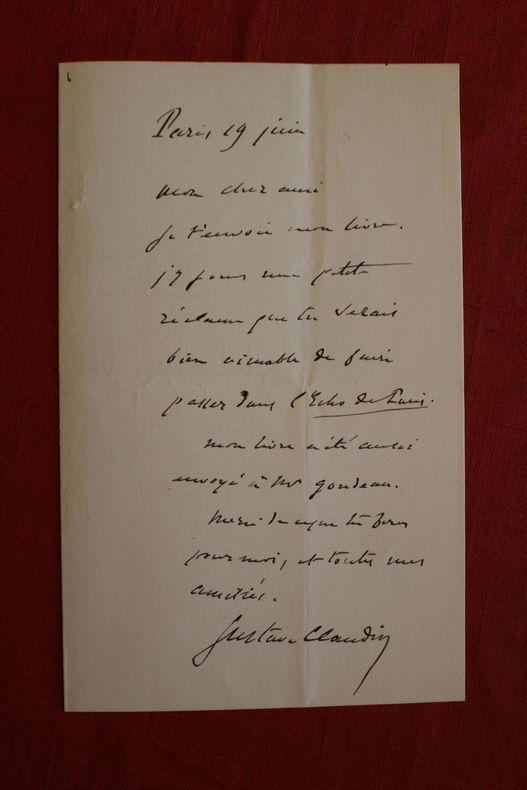 Paris 19 juin
mon cher ami
Je t'envoie mon livre.
j'y joins une petite
réclame que tu serais
bien aimable de faire
passer dans l'Echo de Paris.
mon livre a été aussi
envoyé à Mr Goudeau.
merci de ce que tu feras
pour moi, et toutes mes
amitiés.
Gustave Claudin